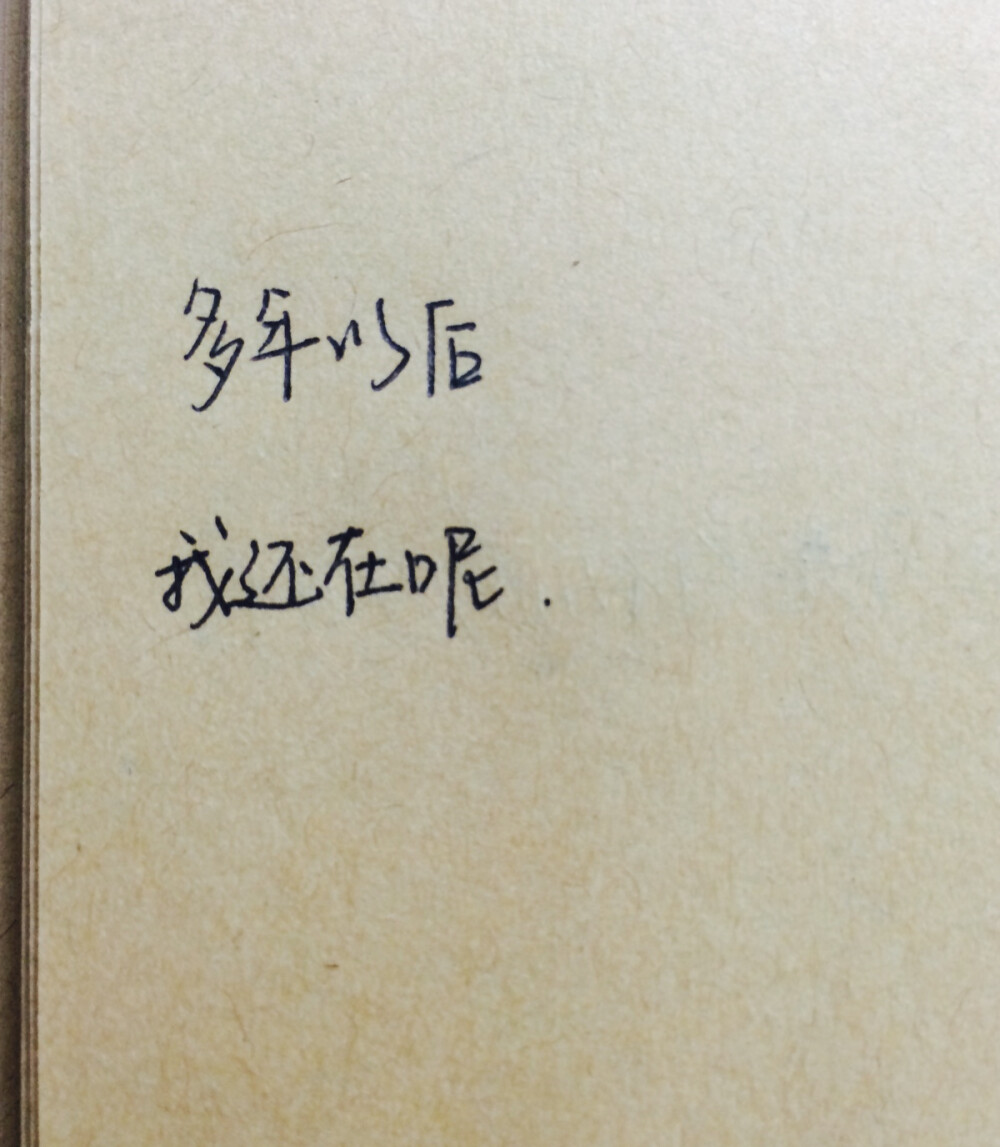 多年以后
我还在呢.